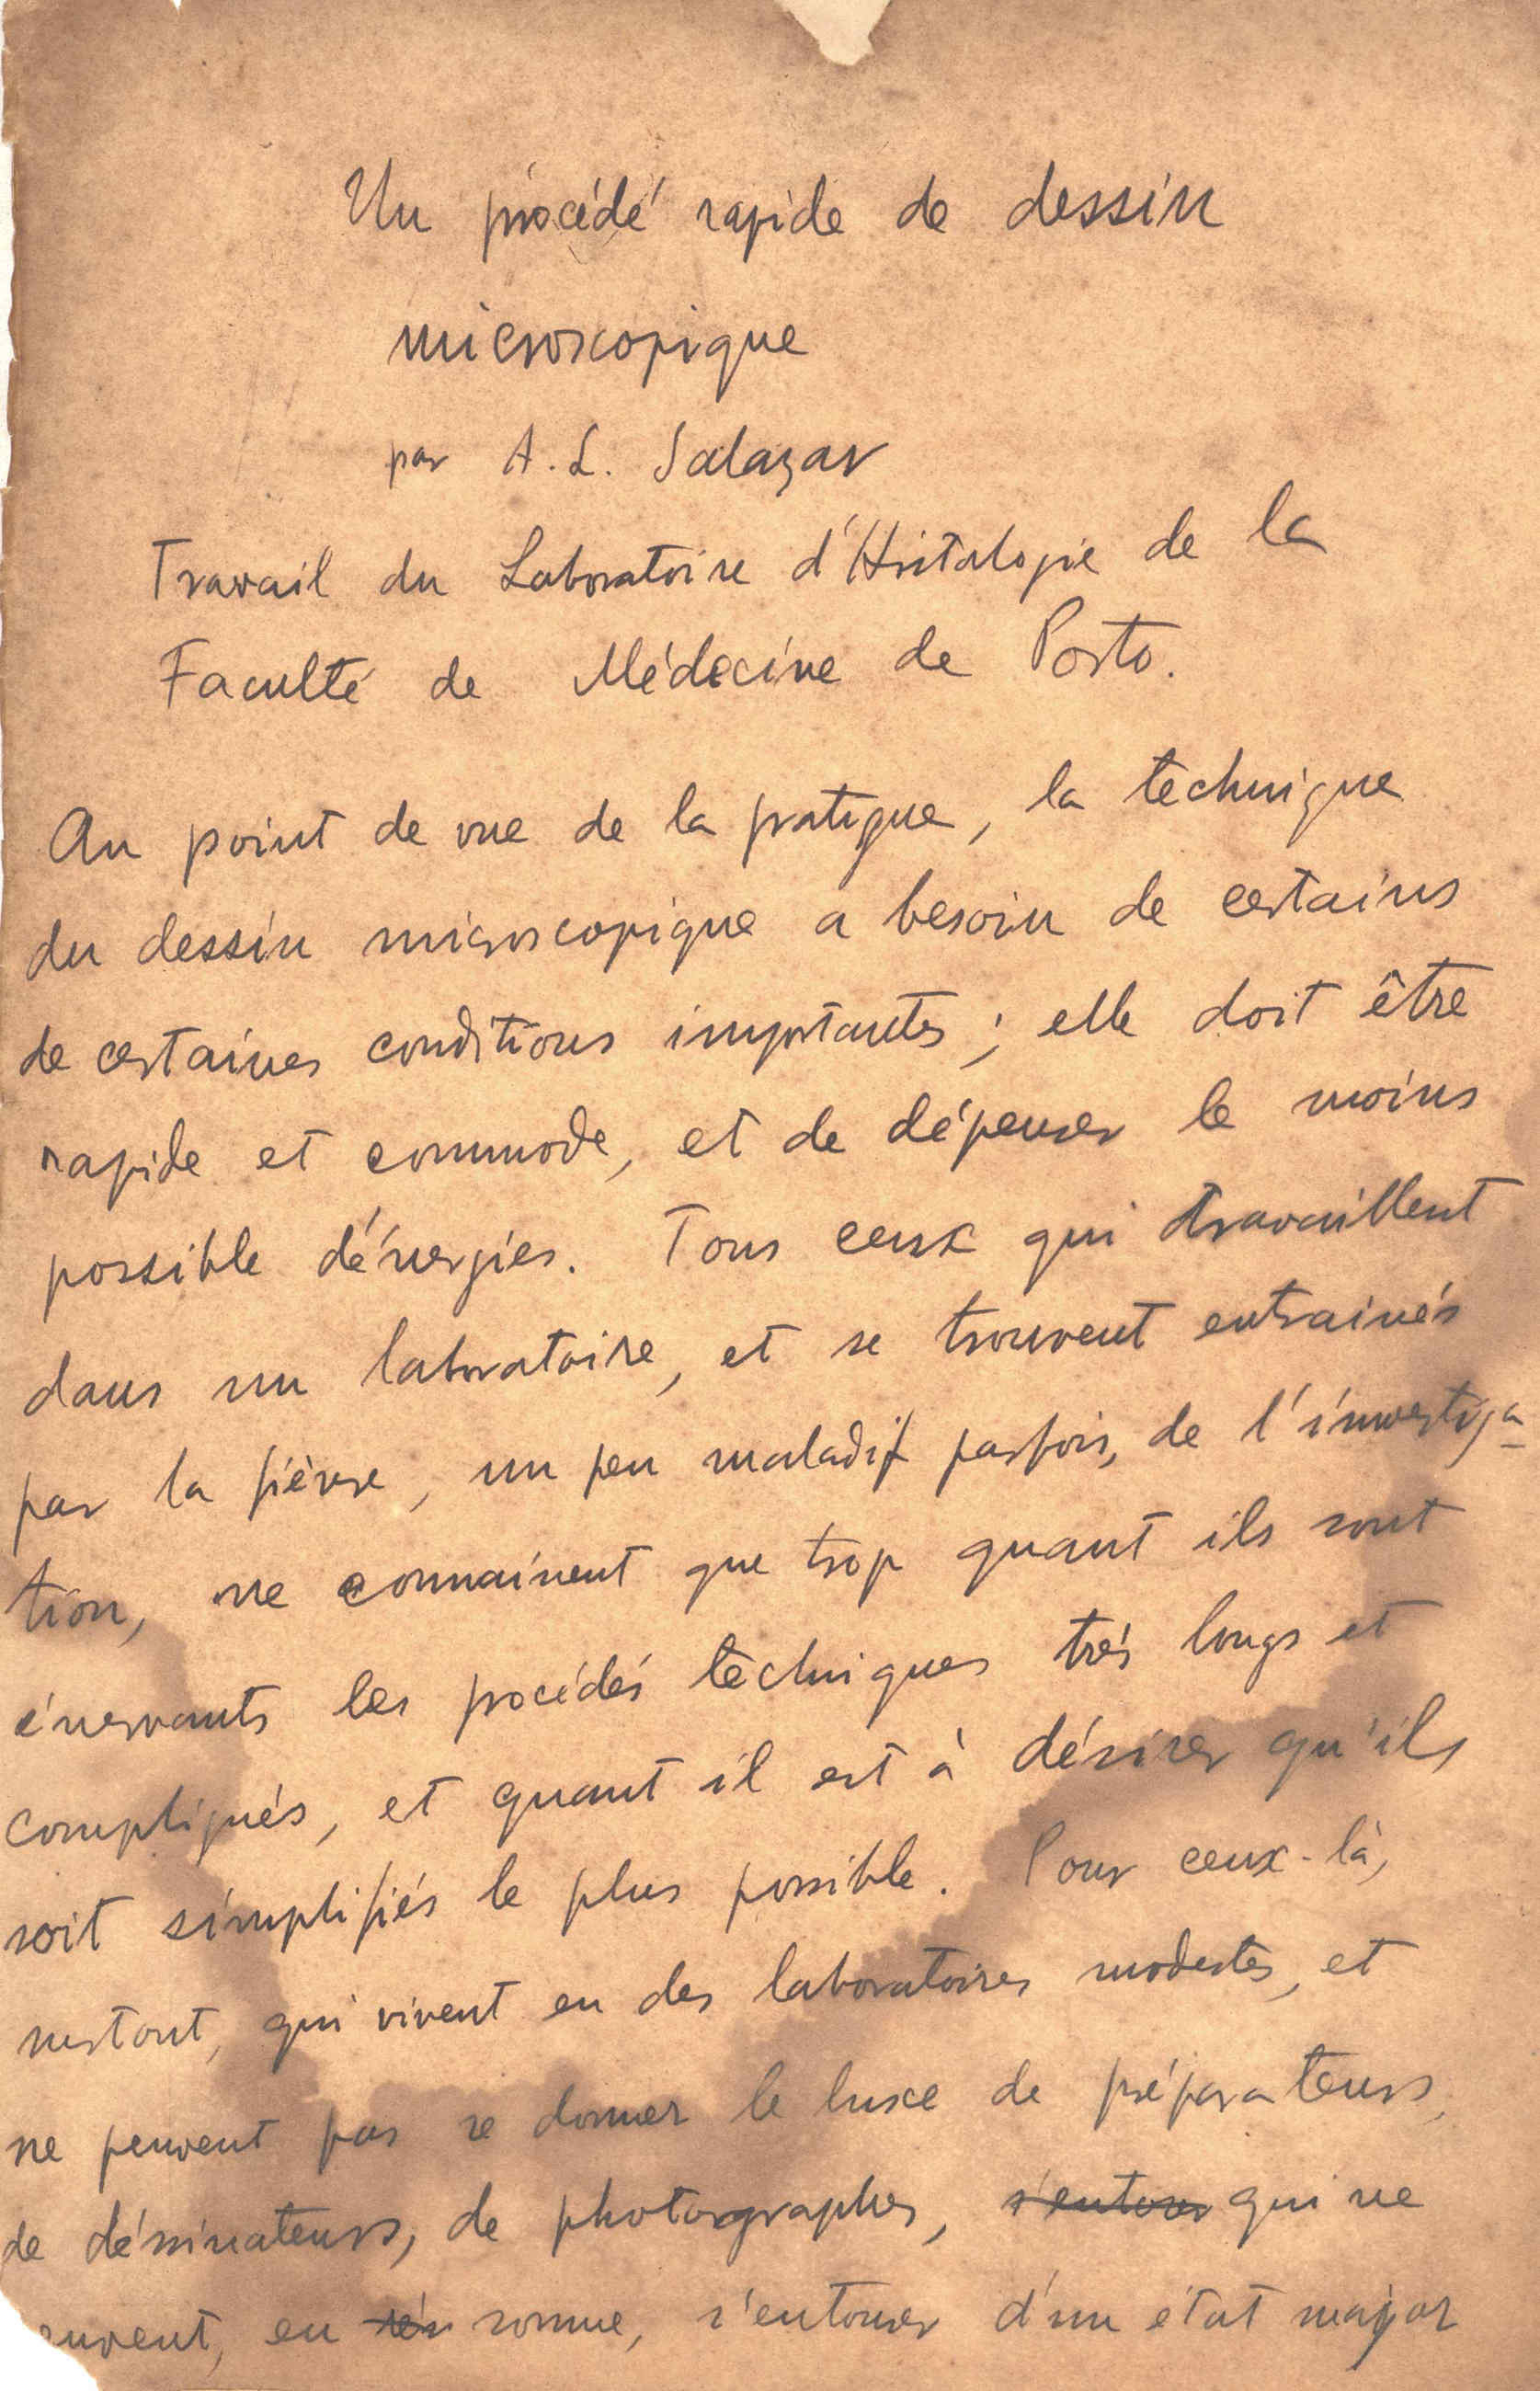 Un procédé rapide de dessin
microscopique
par A. L. Salazar
Travail du Laboratoire d'Histologie de la
Faculté de Médecine de Porto.
Au point de vue de la pratique, la technique
du dessin microscopique a besoin de certains
de certaines conditions importantes; elle doit être
rapide et commode, et de dépenser le moins
possible d'énergies. Tous ceux qui travaillent
dans un laboratoire, et se trouvent entrainés
par la fièvre, un peu maladif parfois, de l'investiga-
tion, ne connaissent que trop quant ils sont
énervants les procédés techniques trés longs et
compliqués, et quant il est à désirer qu'ils
soit simplifiés le plus possible. Pour ceux-là,
surtout, qui vivent en des laboratoires modestes, et
ne peuvent pas se donner le luxe de préparateurs,
de déssinateurs, de photographes, s'entourer qui ne
euvent, en somme, s'entourer d'un état major